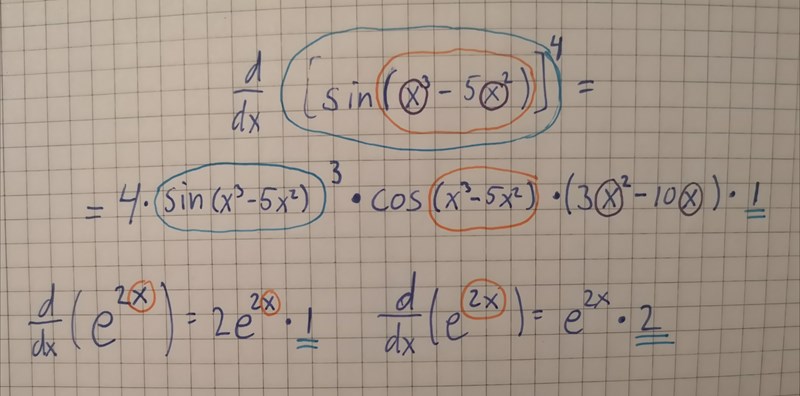 d/dx [sin(x³ - 5x²)]⁴ =
= 4 · sin(x³-5x²)³ · cos(x³-5x²) · (3x²-10x) · 1
d/dx (e^2x) = 2e^2x · 1    d/dx (e^2x) = e^2x · 2